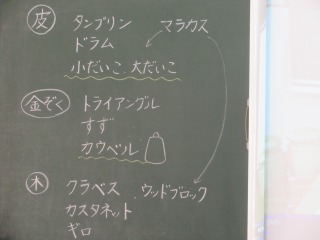 皮 タンブリン マラカス
ドラム
小だいこ 大だいこ
金ぞく トライアングル
すず
カウベル
木 クラベス ウッドブロック
カスタネット
ギロ